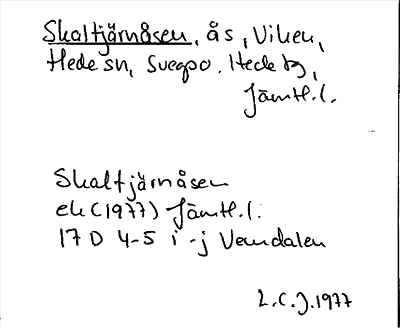 Skaltjärnåsen, ås, Viken,
Hede sn, Svegpo. Hede tg,
Jämtl.l.
Skaltjärnåsen
ek (1977) Jämtl.l.
17 D 4-5 i-j Vemdalen
L.C.J. 1977